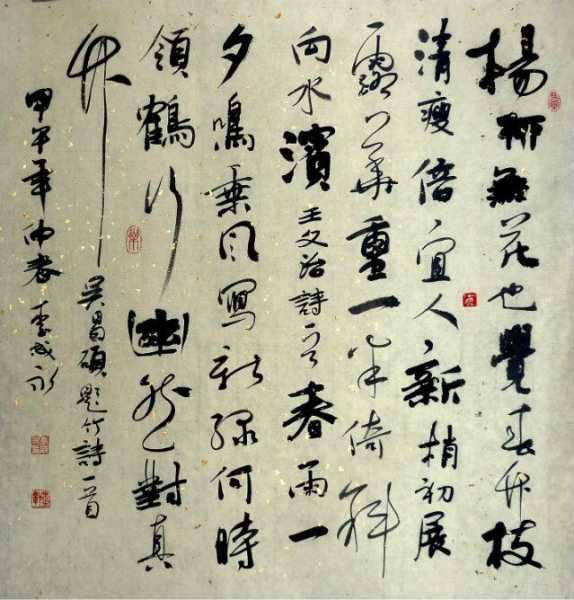 楊柳無花也覺春竹枝
清瘦倍宜人新梢初展
露華重一半倚斜
向水濱王文治詩一首春雨一
夕鳴乘風寫新綠何時
領鶴行幽然對真
竹
吳昌碩題竹詩一首
甲午年仲春李成永